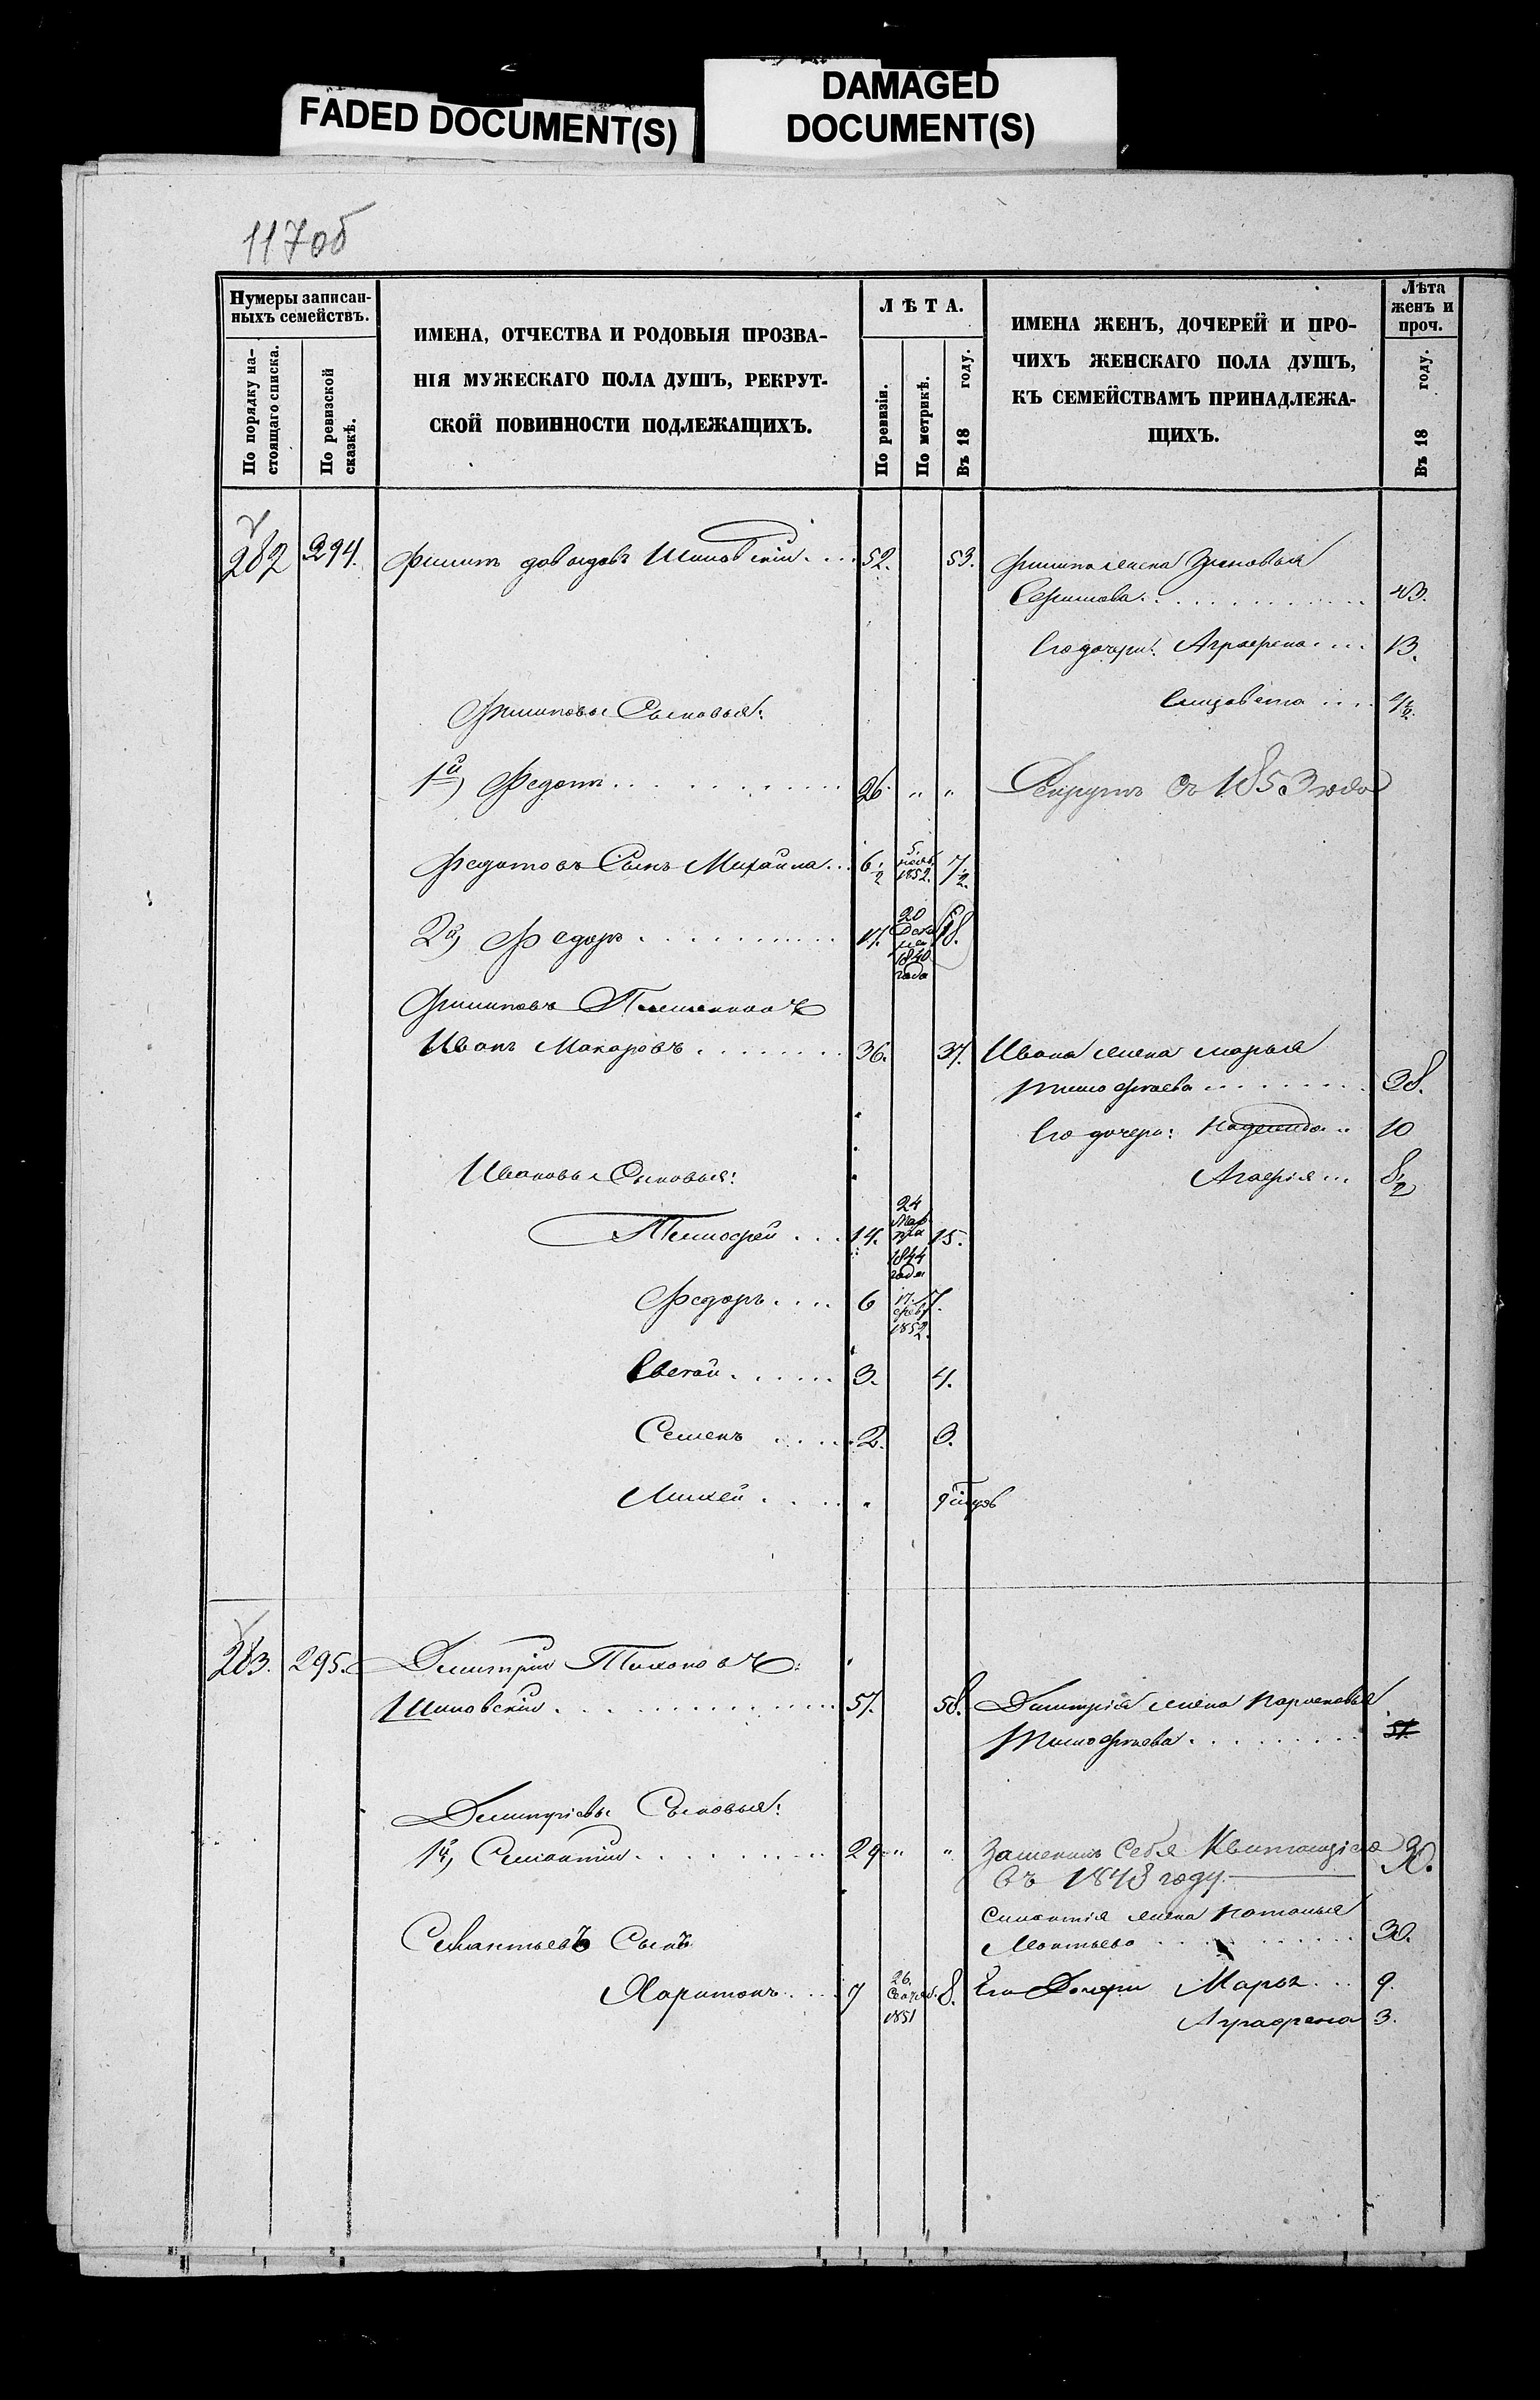 FADED DOCUMENT(S)
DAMAGED
DOCUMENT(S)
117об
Нумеры записан-
ныхъ семействъ.
По порядку на-
стоящаго списка.
По ревизской
сказкѣ.
ИМЕНА, ОТЧЕСТВА И РОДОВЫЯ ПРОЗВА-
НІЯ МУЖЕСКАГО ПОЛА ДУШЪ, РЕКРУТ-
СКОЙ ПОВИННОСТИ ПОДЛЕЖАЩИХЪ.
ЛѢТА.
По ревизіи.
По метрикѣ.
Въ 18 году.
ИМЕНА ЖЕНЪ, ДОЧЕРЕЙ И ПРО-
ЧИХЪ ЖЕНСКАГО ПОЛА ДУШЪ,
КЪ СЕМЕЙСТВАМЪ ПРИНАДЛЕЖА-
ЩИХЪ.
Лѣта
женъ и
проч.
Въ 18 году.
282 294. Филипъ Давыдовъ 52. 53. Филипа жена Зиновья
Ефимова 43.
Его дочери: Аграфена 13.
Елизавета
Филиповы Сыновья:
1й, Федотъ 26 " " Рекрутъ съ 1853 года
Федотовъ Сынъ Михаила 6 1/2 5. нояб. 1852. 7 1/2.
2й, Федоръ 17. 20 Дека 1840 года 18.
Филиповъ Племянникъ
Иванъ Макаровъ 36. 37. Ивана жена Марья
Тимофѣева 38.
Его дочери: Надежда 10
Ивановы Сыновья: Агафія 8 1/2
Тимофей 14. 24 Мар та 1844 года 15.
Федоръ 6 17. февр 1852. 7.
Евсей 3. 4.
Семенъ 2. 3.
Михей "
283. 295. Дмитрій Тихоновъ
57. 58. Дмитрія жена
Тимофѣева 57.
Дмитріевы Сыновья:
1й, 29 " " Заменилъ себя Квитанціею 30.
въ 1843 году
жена Наталья
Леонтьева 30.
Сынъ
Харитонъ 7 26. 1851 8. Его Дочери Марья 9.
Аграфена 3.